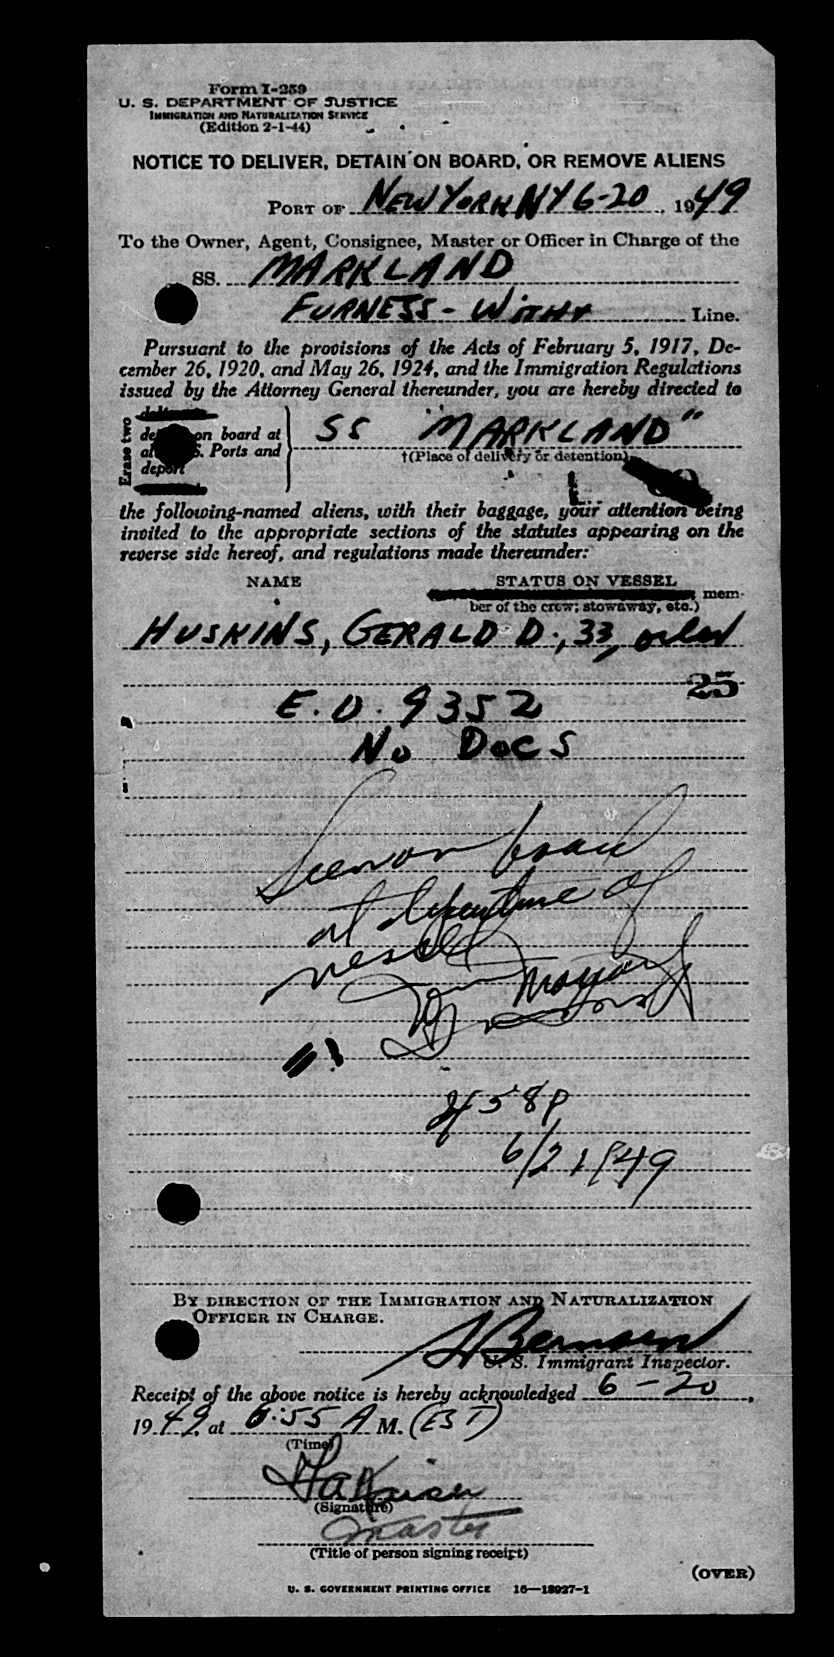 Form I-259
U. S. DEPARTMENT OF JUSTICE
IMMIGRATION AND NATURALIZATION SERVICE
(Edition 2-1-44)
NOTICE TO DELIVER, DETAIN ON BOARD, OR REMOVE ALIENS
PORT OF NEW YORK NY 6-20, 1949
To the Owner, Agent, Consignee, Master or Officer in Charge of the
SS. MARKLAND
FURNESS - WITHY Line.
Pursuant to the provisions of the Acts of February 5, 1917, De-
cember 26, 1920, and May 26, 1924, and the Immigration Regulations
issued by the Attorney General thereunder, you are hereby directed to
Erase two
on board at
S. Ports and
deport
SS "MARKLAND"
†(Place of delivery or detention)
the following-named aliens, with their baggage, your attention being
invited to the appropriate sections of the statutes appearing on the
reverse side hereof, and regulations made thereunder:
NAME STATUS ON VESSEL
mem-
ber of the crew; stowaway, etc.)
HUSKINS, GERALD D., 33, oiler
25
E. D. 9352
No Docs
Seen on board
at departure of
vessel
458P
6/21/49
BY DIRECTION OF THE IMMIGRATION AND NATURALIZATION
OFFICER IN CHARGE.
U. S. Immigrant Inspector.
Receipt of the above notice is hereby acknowledged 6-20,
1949, at 6:55 A M. (EST)
(Time)
(Signature)
Master
(Title of person signing receipt)
(OVER)
U. S. GOVERNMENT PRINTING OFFICE 16—18927-1